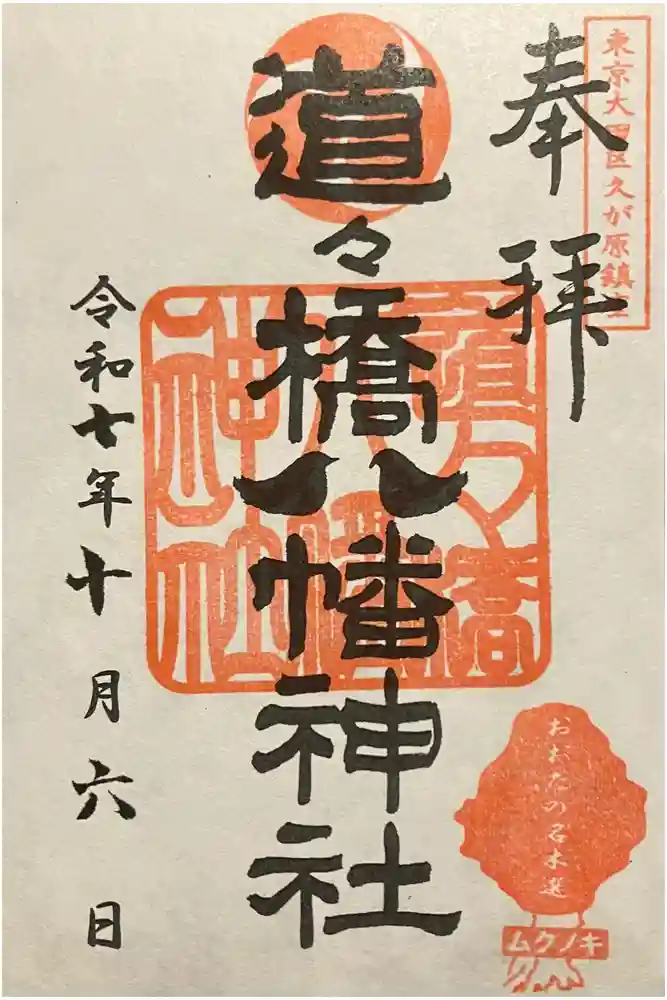 東京大田区久が原鎮守
奉拝
道々橋八幡神社
道々橋
八幡
神社
令和七年十月六日
おおたの名木選
ムクノキ